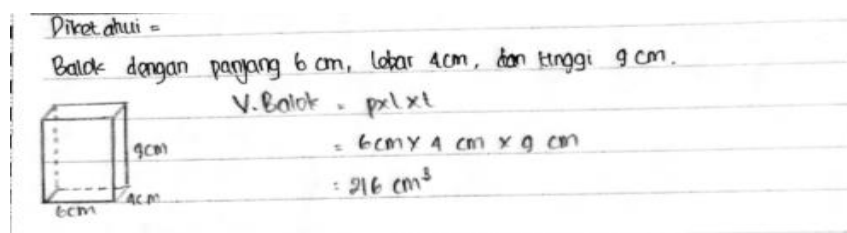 Diketahui =
Balok dengan panjang 6 cm, lebar 4cm, dan tinggi 9 cm.
V. Balok = pxlxt
9cm
= 6cm x 4 cm x 9 cm
= 216 cm³
4cm
6cm